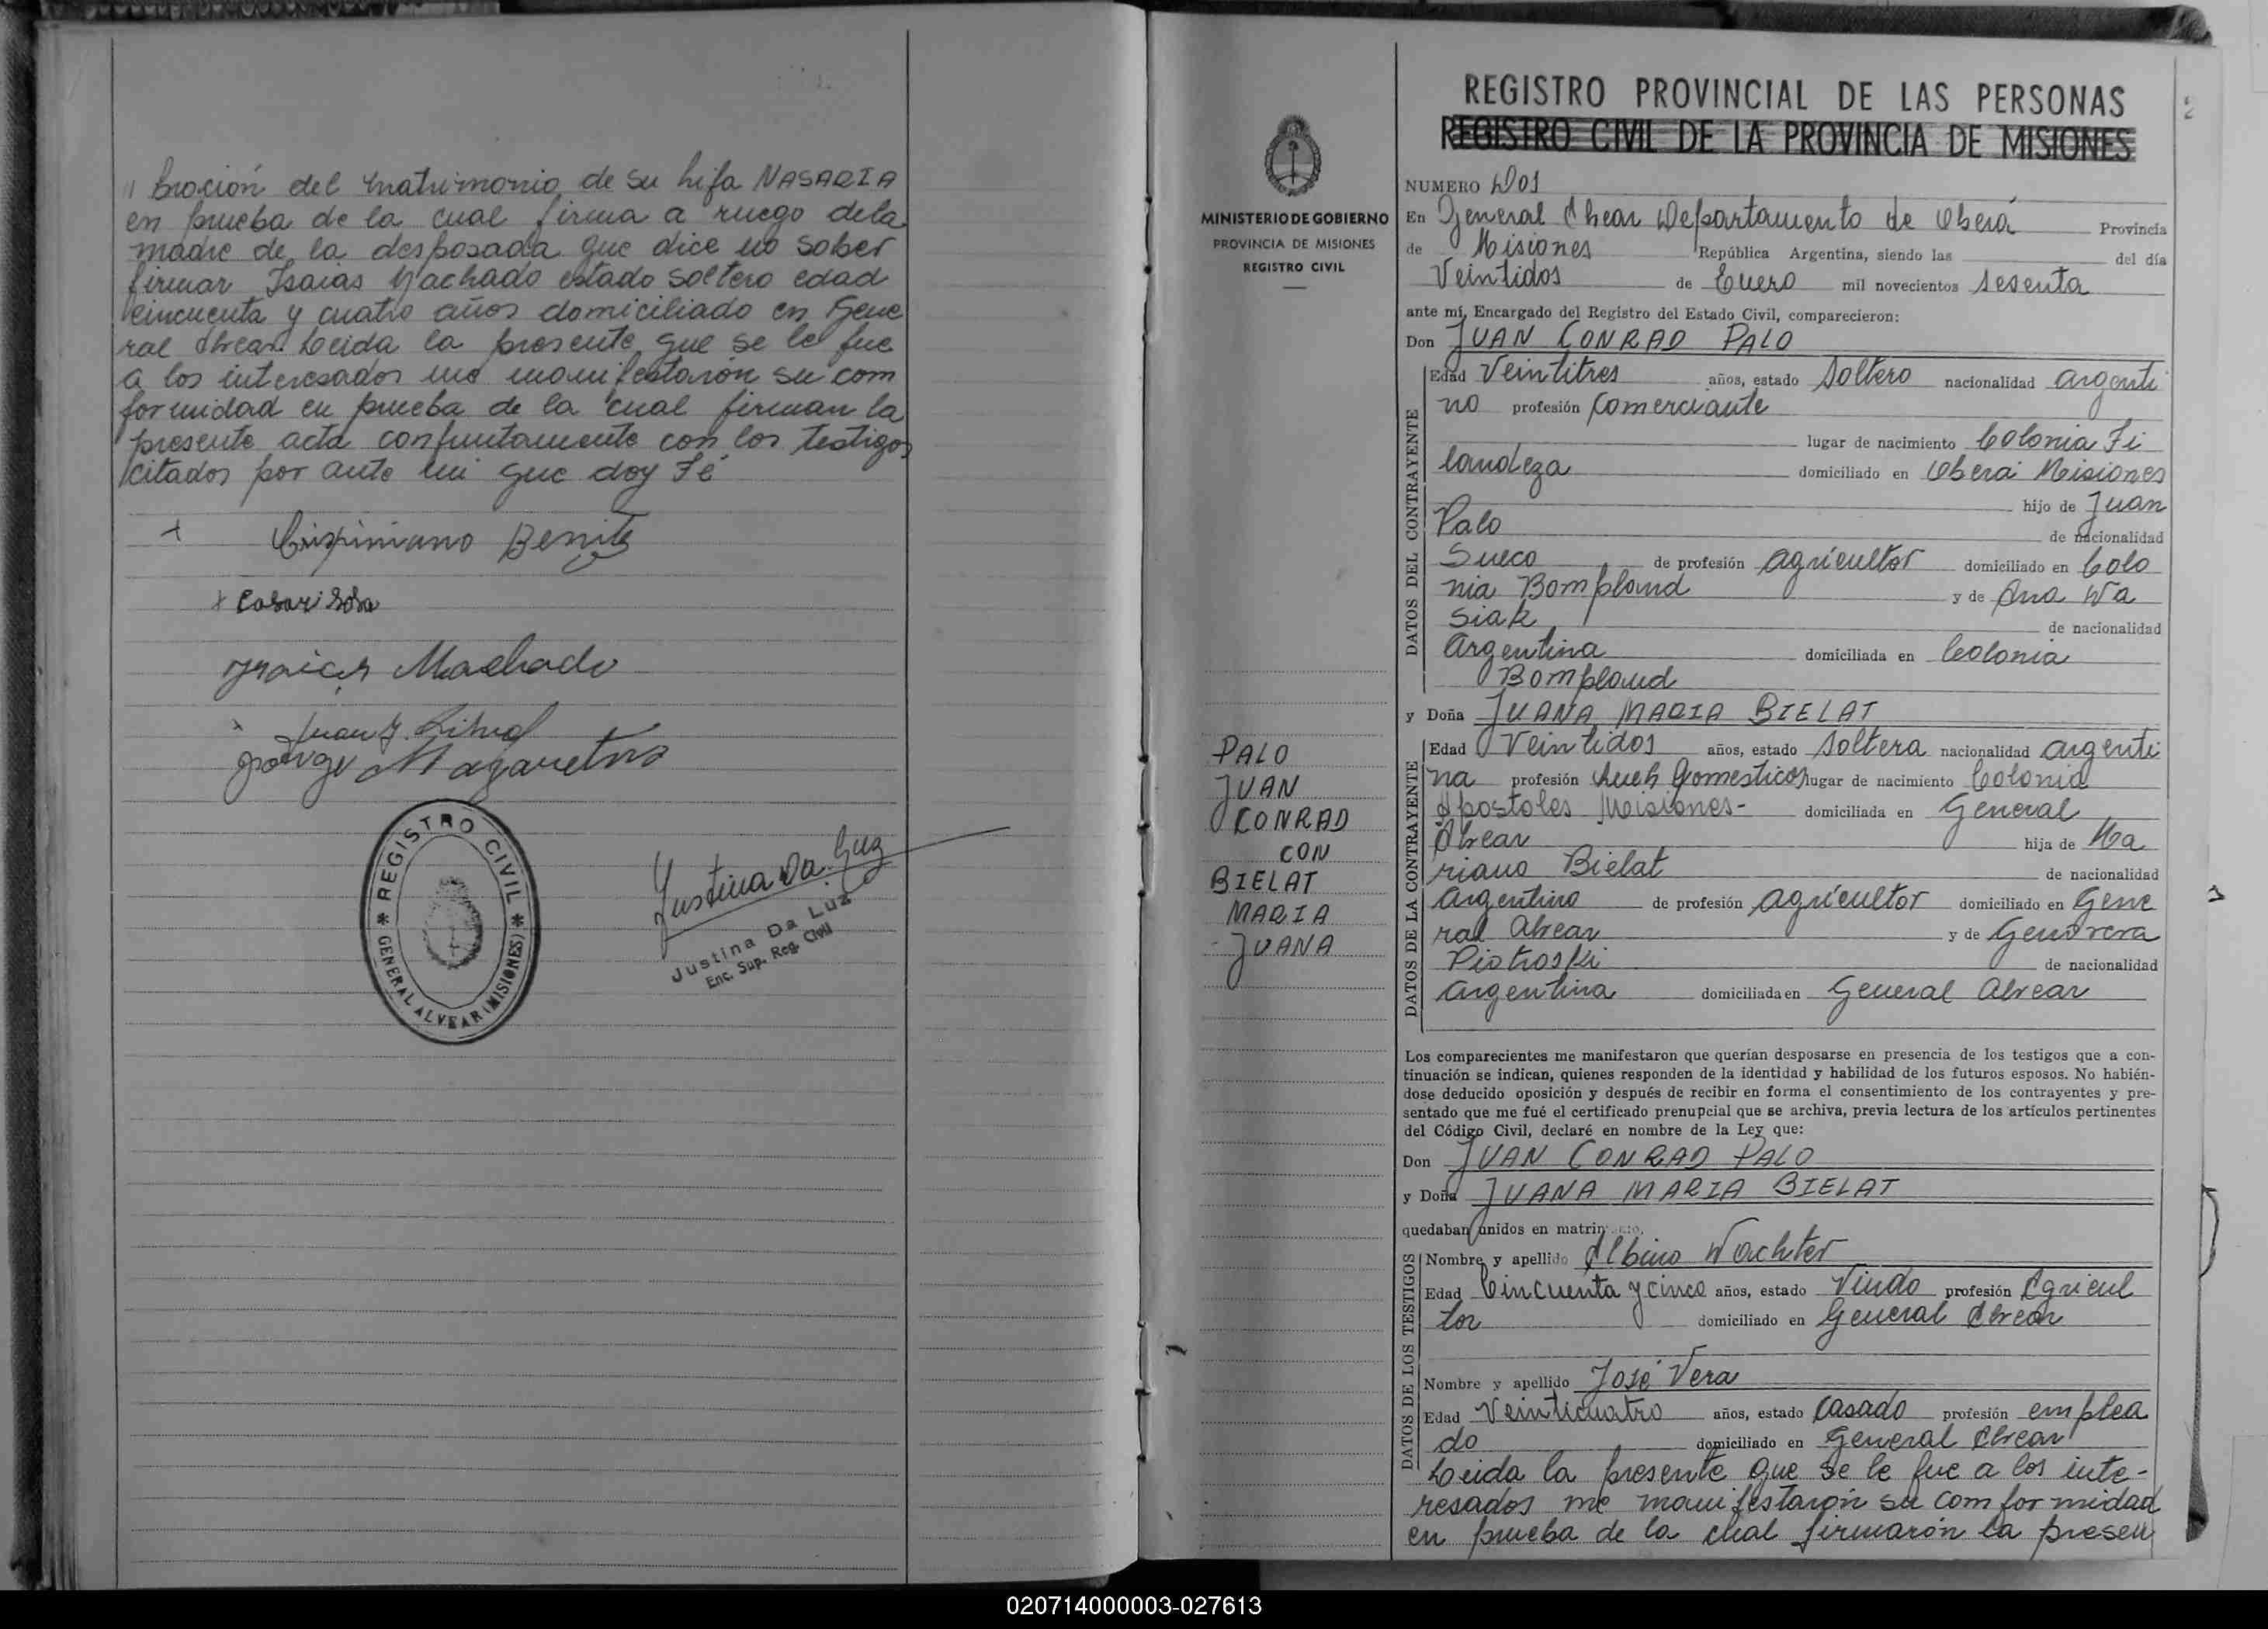 bración del matrimonio de su hija NASARIA
en prueba de la cual firma a ruego dela
madre de la desposada que dice no saber
firmar Isaias Machado estado soltero edad
cincuenta y cuatro años domiciliado en Gene
ral Alvear. Leida la presente que se le fue
a los interesados me manifestarón su com
formidad en prueba de la cual firman la
presente acta conjuntamente con los testigos
citados por ante mi que doy Fé
Crispiniano Benite
Machado
REGISTRO CIVIL
GENERAL ALVEAR (MISIONES)
Justina Da Luz
Justina Da Luz
Enc. Sup. Reg. Civil
MINISTERIO DE GOBIERNO
PROVINCIA DE MISIONES
REGISTRO CIVIL
PALO
JUAN
CONRAD
CON
BIELAT
MARIA
JUANA
REGISTRO PROVINCIAL DE LAS PERSONAS
REGISTRO CIVIL DE LA PROVINCIA DE MISIONES
NUMERO DOS
En General Alvear Departamento de Oberá Provincia
de Misiones República Argentina, siendo las del día
Veintidos de Enero mil novecientos sesenta
ante mí, Encargado del Registro del Estado Civil, comparecieron:
Don JUAN CONRAD PALO
DATOS DEL CONTRAYENTE
Edad Veintitres años, estado Soltero nacionalidad argenti
no profesión Comerciante
lugar de nacimiento Colonia Fi
landeza domiciliado en Oberá Misiones
hijo de Juan
Palo de nacionalidad
Sueco de profesión agricultor domiciliado en Colo
nia Bompland y de Ana Wa
siak de nacionalidad
Argentina domiciliada en Colonia
Bompland
y Doña JUANA MARIA BIELAT
DATOS DE LA CONTRAYENTE
Edad Veintidos años, estado Soltera nacionalidad argenti
na profesión Queh Domesticos lugar de nacimiento Colonia
Apostoles Misiones- domiciliada en General
Alvear hija de Ma
riano Bielat de nacionalidad
Argentino de profesión agricultor domiciliado en Gene
ral Alvear y de Genovera
Piotroski de nacionalidad
Argentina domiciliada en General Alvear
Los comparecientes me manifestaron que querían desposarse en presencia de los testigos que a con-
tinuación se indican, quienes responden de la identidad y habilidad de los futuros esposos. No habién-
dose deducido oposición y después de recibir en forma el consentimiento de los contrayentes y pre-
sentado que me fué el certificado prenupcial que se archiva, previa lectura de los artículos pertinentes
del Código Civil, declaré en nombre de la Ley que:
Don JUAN CONRAD PALO
y Doña JUANA MARIA BIELAT
quedaban unidos en matrimonio.
DATOS DE LOS TESTIGOS
Nombre y apellido Albino Wachter
Edad Cincuenta y cinco años, estado Viudo profesión Agricul
tor domiciliado en General Alvear
Nombre y apellido José Vera
Edad Veinticuatro años, estado Casado profesión emplea
do domiciliado en General Alvear
Leida la presente que se le fue a los inte-
resados me manifestarón su comformidad
en prueba de la cual firmarón la presen
020714000003-027613